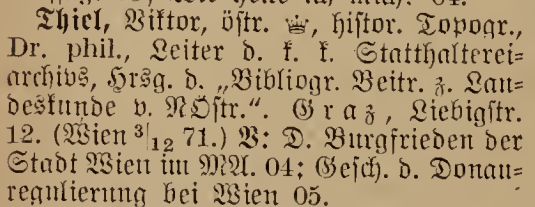 Thiel, Viktor, östr. ♕, histor. Topogr.,
Dr. phil., Leiter d. k. k. Statthalterei=
archivs, Hrsg. d. „Bibliogr. Beitr. z. Lan=
deskunde v. NÖstr.“. Graz, Liebigstr.
12. (Wien 3/12 71.) V: D. Burgfrieden der
Stadt Wien im MA. 04; Gesch. d. Donau=
regulierung bei Wien 05.